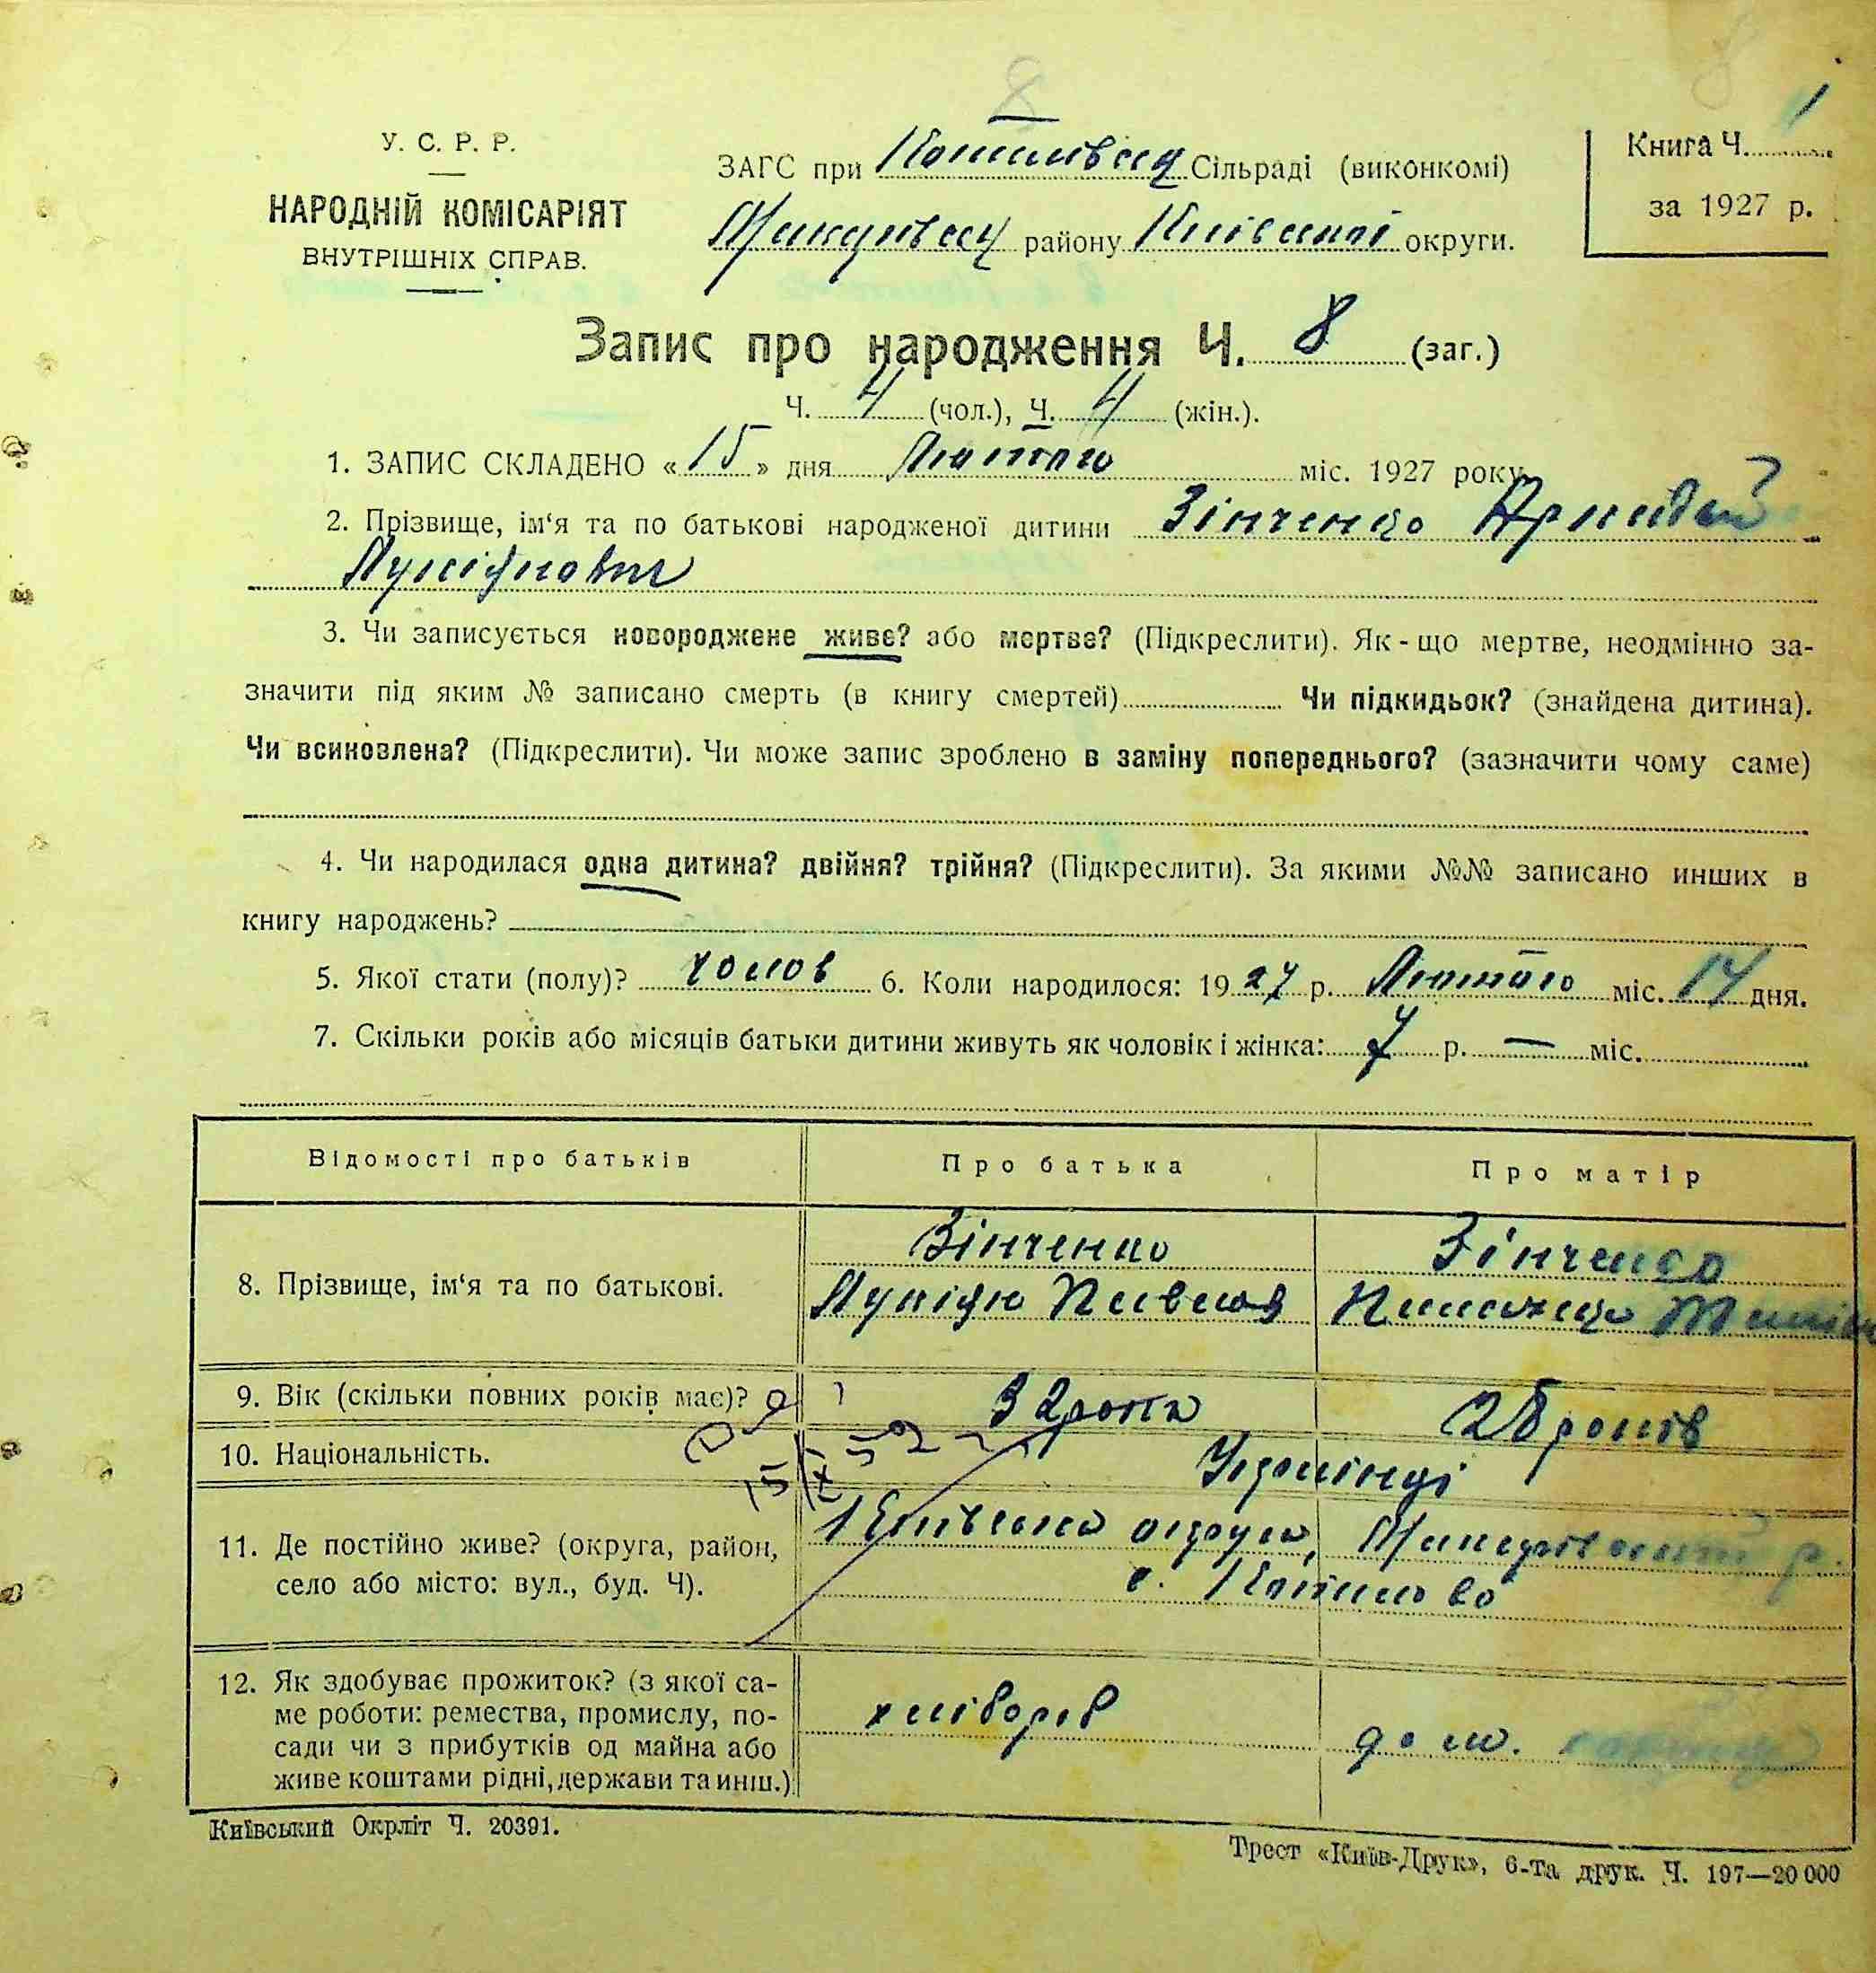 8
У. С. Р. Р.
НАРОДНІЙ КОМІСАРІЯТ
ВНУТРІШНІХ СПРАВ.
ЗАГС при Сільраді (виконкомі)
району Київської округи.
Книга Ч. 1
за 1927 р.
Запис про народження Ч. 8 (заг.)
Ч. 4 (чол.), Ч. 4 (жін.).
1. ЗАПИС СКЛАДЕНО «15» дня Лютого міс. 1927 року
2. Прізвище, ім‘я та по батькові народженої дитини Зінченко
3. Чи записується новороджене живе? або мертве? (Підкреслити). Як-що мертве, неодмінно за-
значити під яким № записано смерть (в книгу смертей) Чи підкидьок? (знайдена дитина).
Чи всиновлена? (Підкреслити). Чи може запис зроблено в заміну попереднього? (зазначити чому саме)
4. Чи народилася одна дитина? двійня? трійня? (Підкреслити). За якими №№ записано инших в
книгу народжень?
5. Якої стати (полу)? чолов 6. Коли народилося: 1927 р. Лютого міс. 14 дня.
7. Скільки років або місяців батьки дитини живуть як чоловік і жінка: 7 р. — міс.
Відомості про батьків Про батька Про матір
8. Прізвище, ім‘я та по батькові.
Зінченко Зінченко
9. Вік (скільки повних років має)? 32 роки 28 років
10. Національність. Українці
11. Де постійно живе? (округа, район,
село або місто: вул., буд. Ч).
Київська округа, р.
с.
12. Як здобуває прожиток? (з якої са-
ме роботи: ремества, промислу, по-
сади чи з прибутків од майна або
живе коштами рідні, держави та инш.)
хлібороб дом.
Київський Окрліт Ч. 20391.
Трест «Київ-Друк», 6-та друк. Ч. 197—20 000